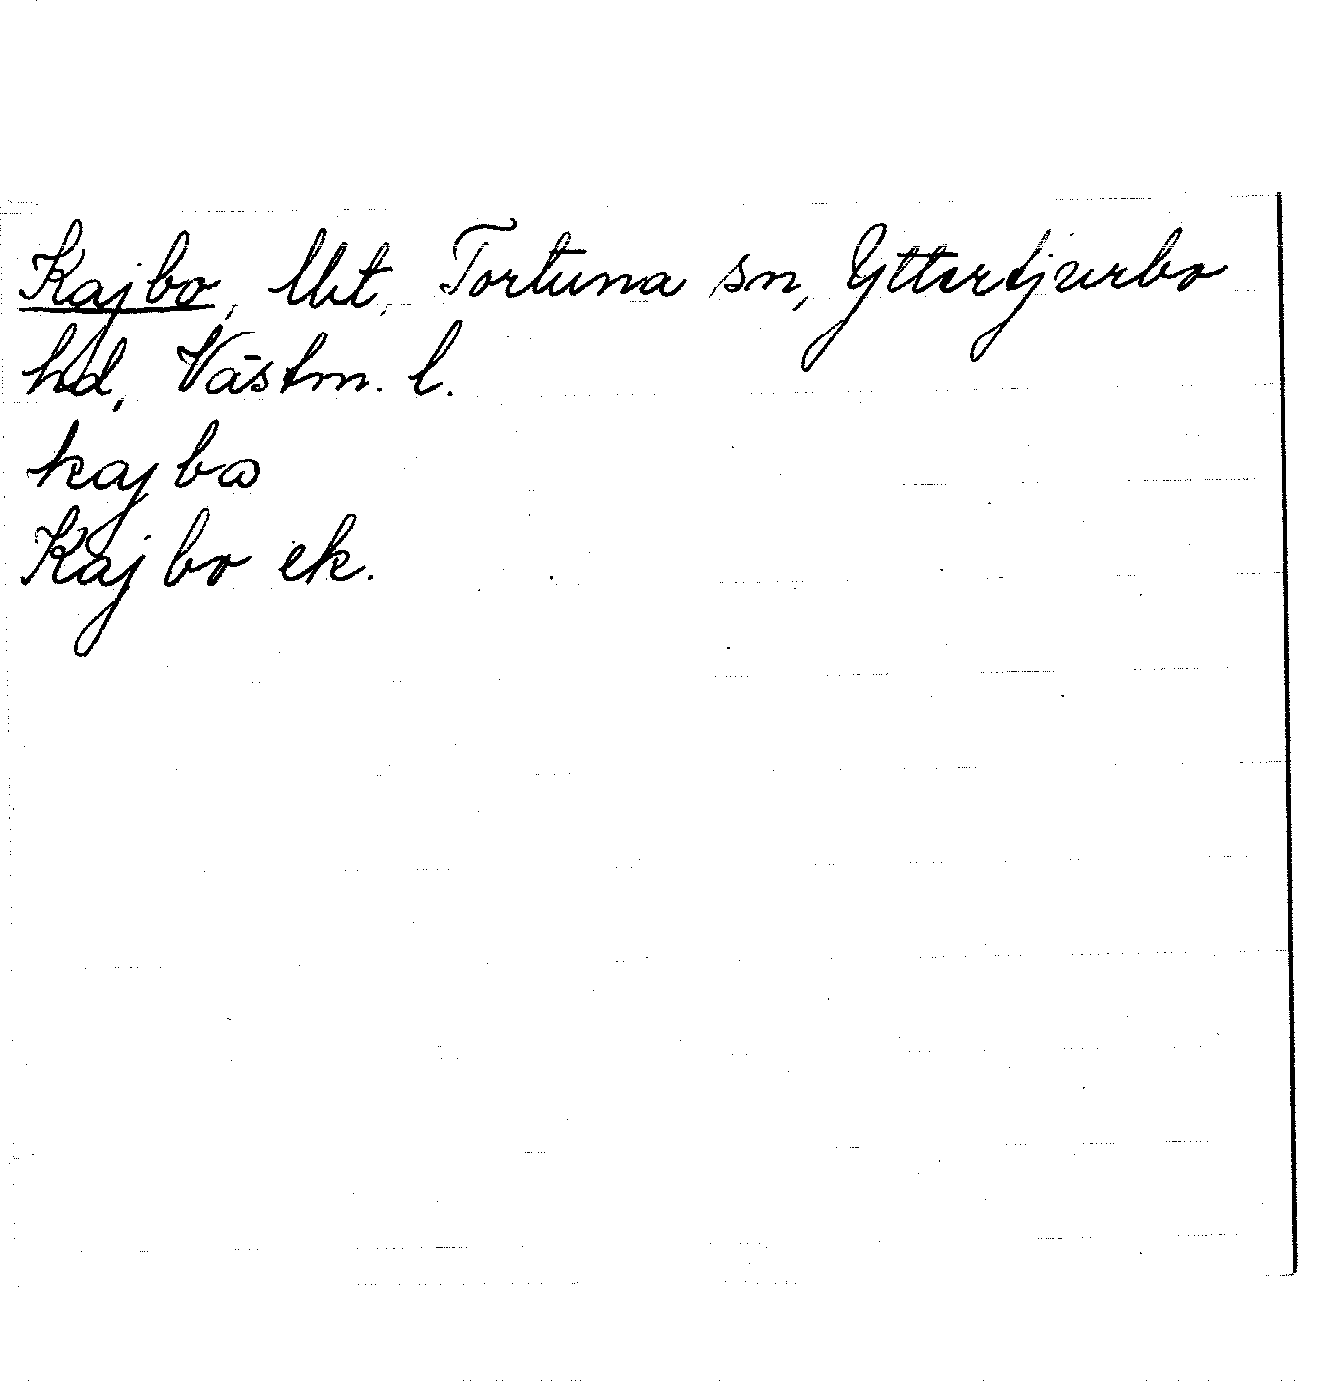 Kajbo, Ubt, Tortuna sn, Yttertjurbo
hd, Västm. l.
kajbω
Kajbo ek.